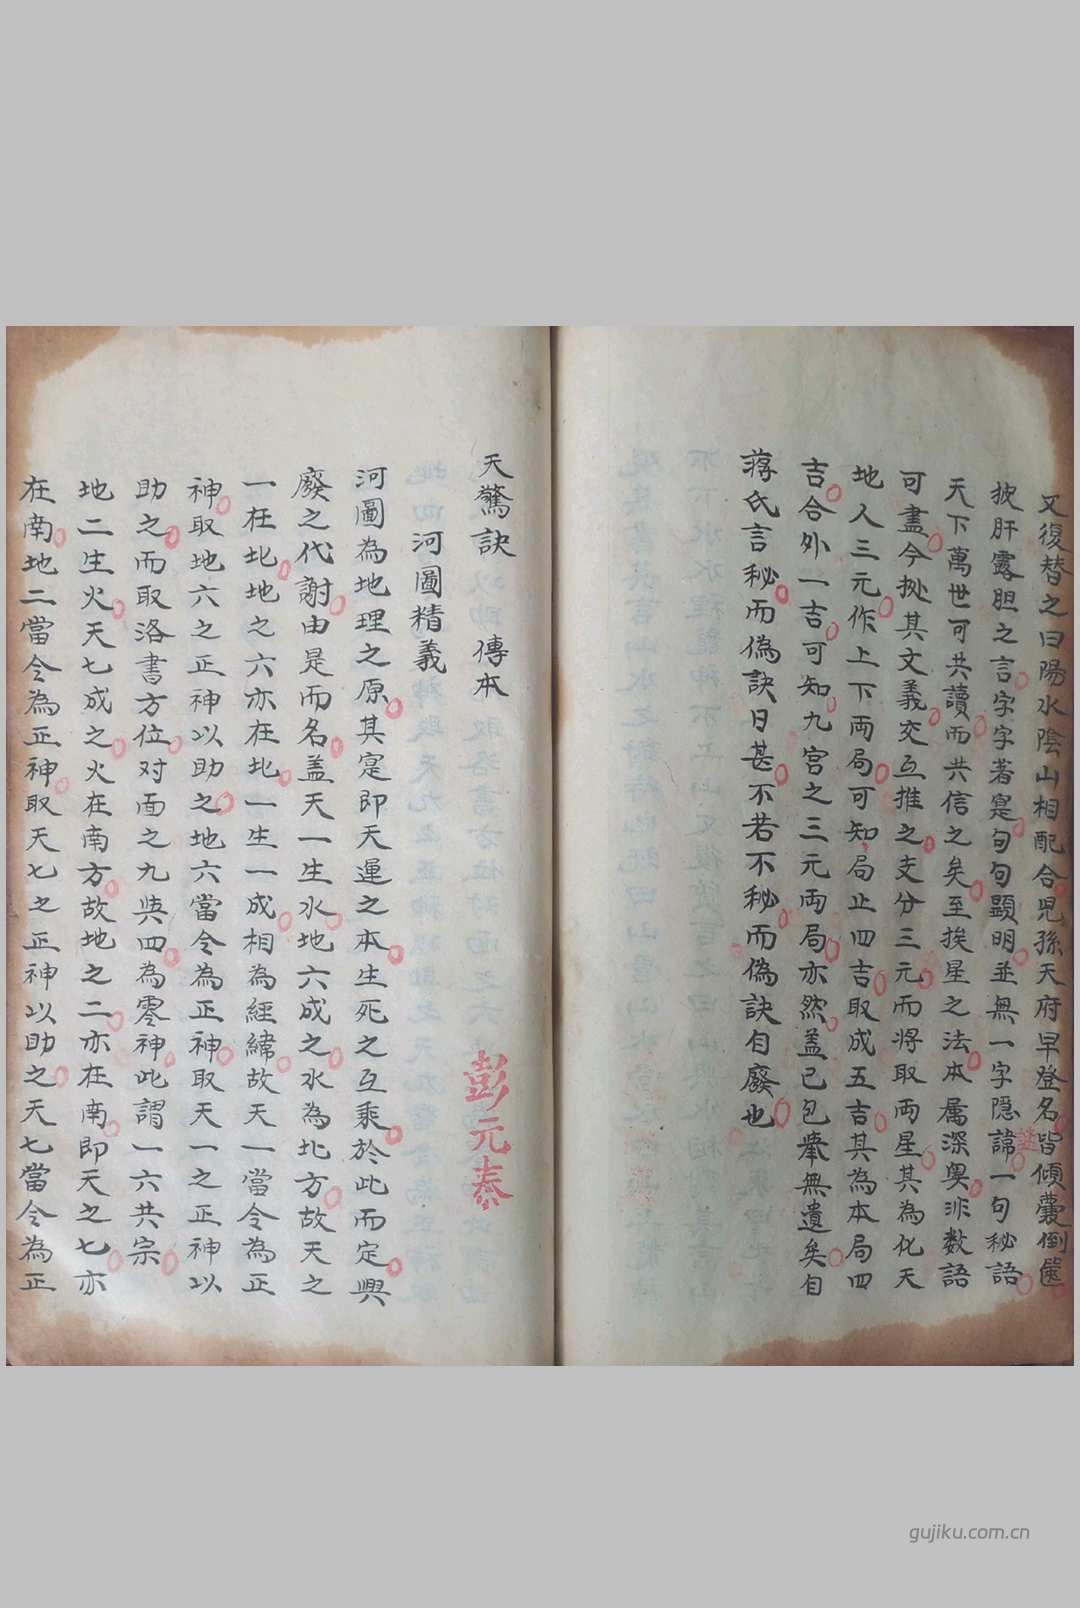 又復替之曰陽水陰山相配合児孫天府早登名皆傾囊倒篋
披肝露胆之言字字著寔句句顕明並無一字隐諱一句秘語
天下萬世可共讀而共信之矣至挨星之法本属深奥非数語
可盡今挍其文義交互推之支分三元而将取両星其為化天
地人三元作上下両局可知局止四吉取成五吉其為本局四
吉合外一吉可知九宫之三元両局亦然盖已包举無遺矣自
蒋氏言秘而偽訣日甚不若不秘而偽訣自廢也
天驚訣　傳本
彭元泰
河圖精義
河圖為地理之原其寔即天運之本生死之互乘於此而定興
廢之代謝由是而名盖天一生水地六成之水為北方故天之
一在北地之六亦在北一生一成相為經緯故天一當令為正
神取地六之正神以助之地六當令為正神取天一之正神以
助之而取洛書方位对面之九與四為零神此謂一六共宗
地二生火天七成之火在南方故地之二亦在南即天之七亦
在南地二當令為正神取天七之正神以助之天七當令為正
gujiku.com.cn